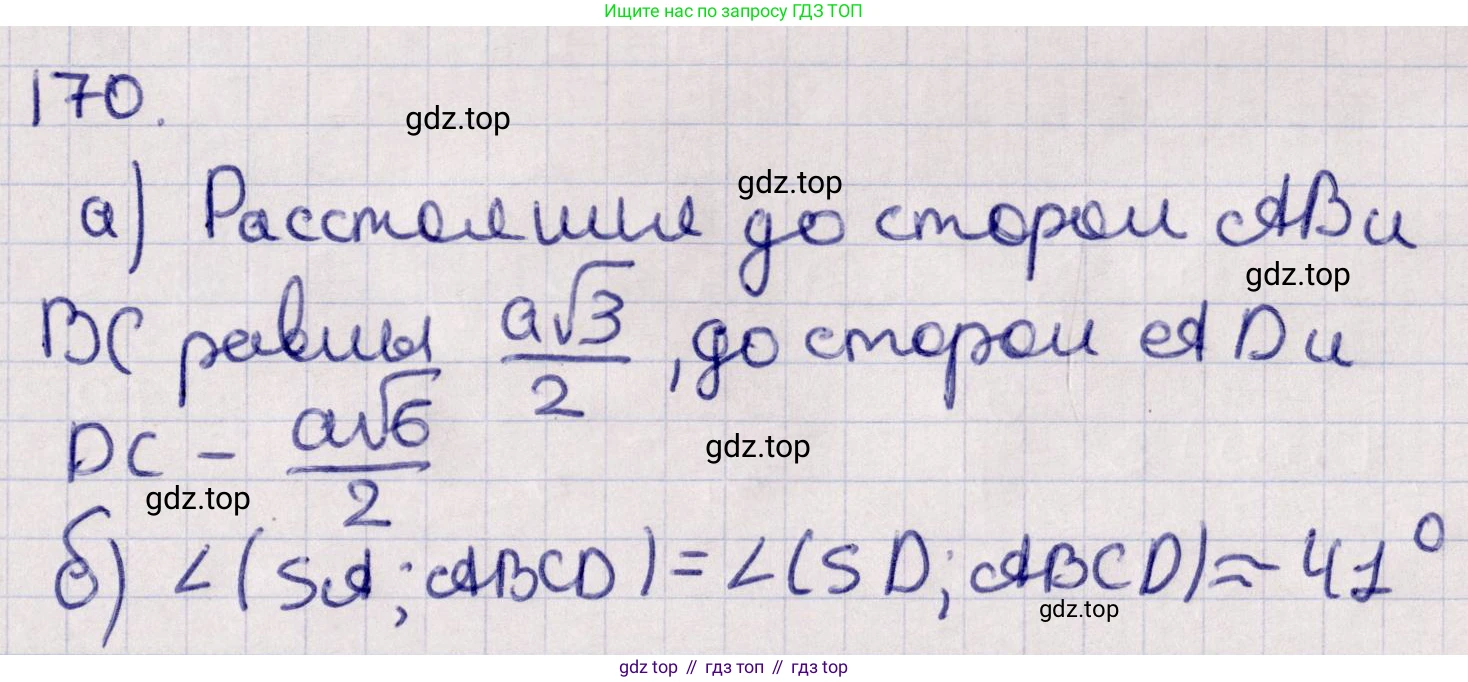 Ищите нас по запросу ГДЗ ТОП
170.
gdz.top
gdz.top
а) Расстояние до сторон AB и
gdz.top
BC равны a√3/2, до сторон AD и
DC – a√6/2
gdz.top
gdz.top
б) ∠(SA; ABCD) = ∠(SD; ABCD) ≈ 41°
gdz.top
gdz top // гдз топ // гдз top